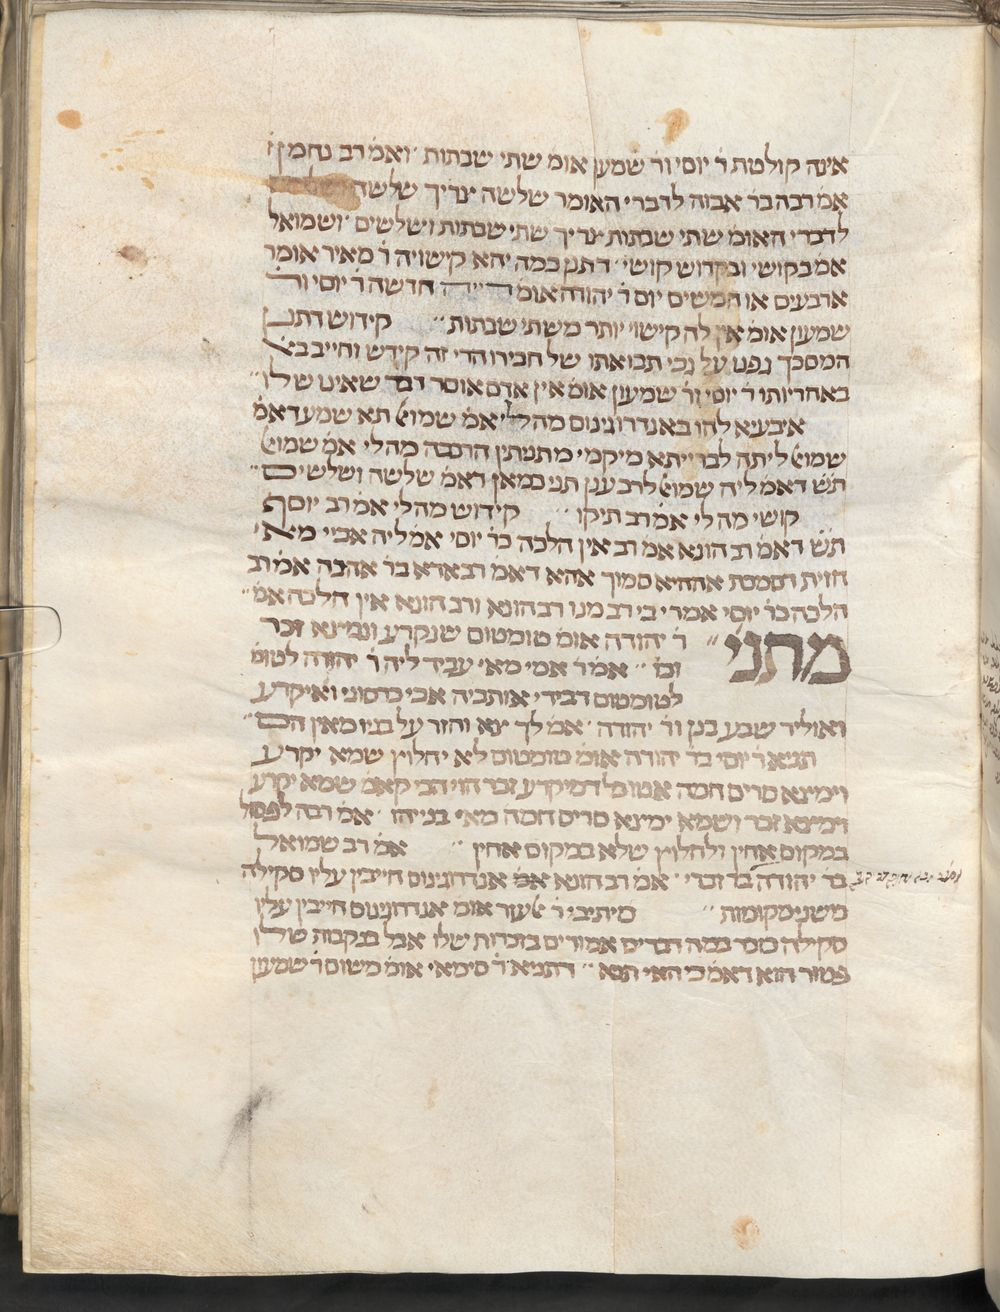 אינה קולטת ר' יוסי ור' שמעון אומ' שתי שבתות ואמ' רב נחמן
אמ' רבה בר אבוה לדברי האומר שלשה צריך שלשה
לדברי האומ' שתי שבתות צריך שתי שבתות ושלשים ושמואל
אמ' בקושי ובקדוש קושי דתנן כמה יהא קישויה ר' מאיר אומר
ארבעים או חמשים יום ר' יהודה אומ' דייה חדשה ר' יוסי ור'
שמעון אומ' אין לה קישוי יותר משתי שבתות קידוש דתנן
המסכך גפנו על גבי תבואתו של חבירו הרי זה קידש וחייב
באחריותו ר' יוסי ור' שמעון אומ' אין אדם אוסר דבר שאינו שלו
איבעיא להו באנדרוגינוס מהו לי אמ' שמואל תא שמע דאמ'
שמואל ליתה לברייתא מיקמי מתניתין הרכבה מה לי אמ' שמואל
ת"ש דאמ' ליה שמואל לרב ענן תני כמאן דאמ' שלשה ושלשים
קושי מה לי אמ' רב תיקו קידוש מה לי אמ' רב יוסף
ת"ש דאמ' רב הונא אמ' רב אין הלכה כר' יוסי אמ' ליה אביי מאי
חזית דסמכת אההיא סמוך אהא דאמ' רב אדא בר אהבה אמ' רב
הלכה כר' יוסי אמרי בי רב מנו רב הונא ורב הונא אין הלכה אמ'
מתני' ר' יהודה אומ' טומטום שנקרע ונמצא זכר
וכו' אמר אמי מאי עביד ליה ר' יהודה לטומ'
לטומטום דבירי אותביה אבי כורסוני ואיקרע
ואוליד שבע בנין ור' יהודה אמ' לך צא וחזר על בניו מאין הם
תניא ר' יוסי בר' יהודה אומ' טומטום לא יחלוץ שמא יקרע
וימצא סריס חמה אטו כל דמיקרע זכר הוי הכי קאמ' שמא יקרע
וימצא זכר ושמא ימצא סריס חמה מאי בנייהו אמ' רבה לפסול
במקום אחין ולחלוץ שלא במקום אחין אמ' רב שמואל
בר יהודה בר זכרי אמ' רב הונא אמ' אנדרוגינוס חייבין עליו סקילה
משני מקומות מיתיבי ר' אלעזר אומ' אנדרוגינוס חייבין עליו
סקילה כזכר במה דברים אמורים בזכרות שלו אבל בנקבות שלו
פטור הוא דאמ' כי האי תנא דתניא ר' סימאי אומ' משום ר' שמעון